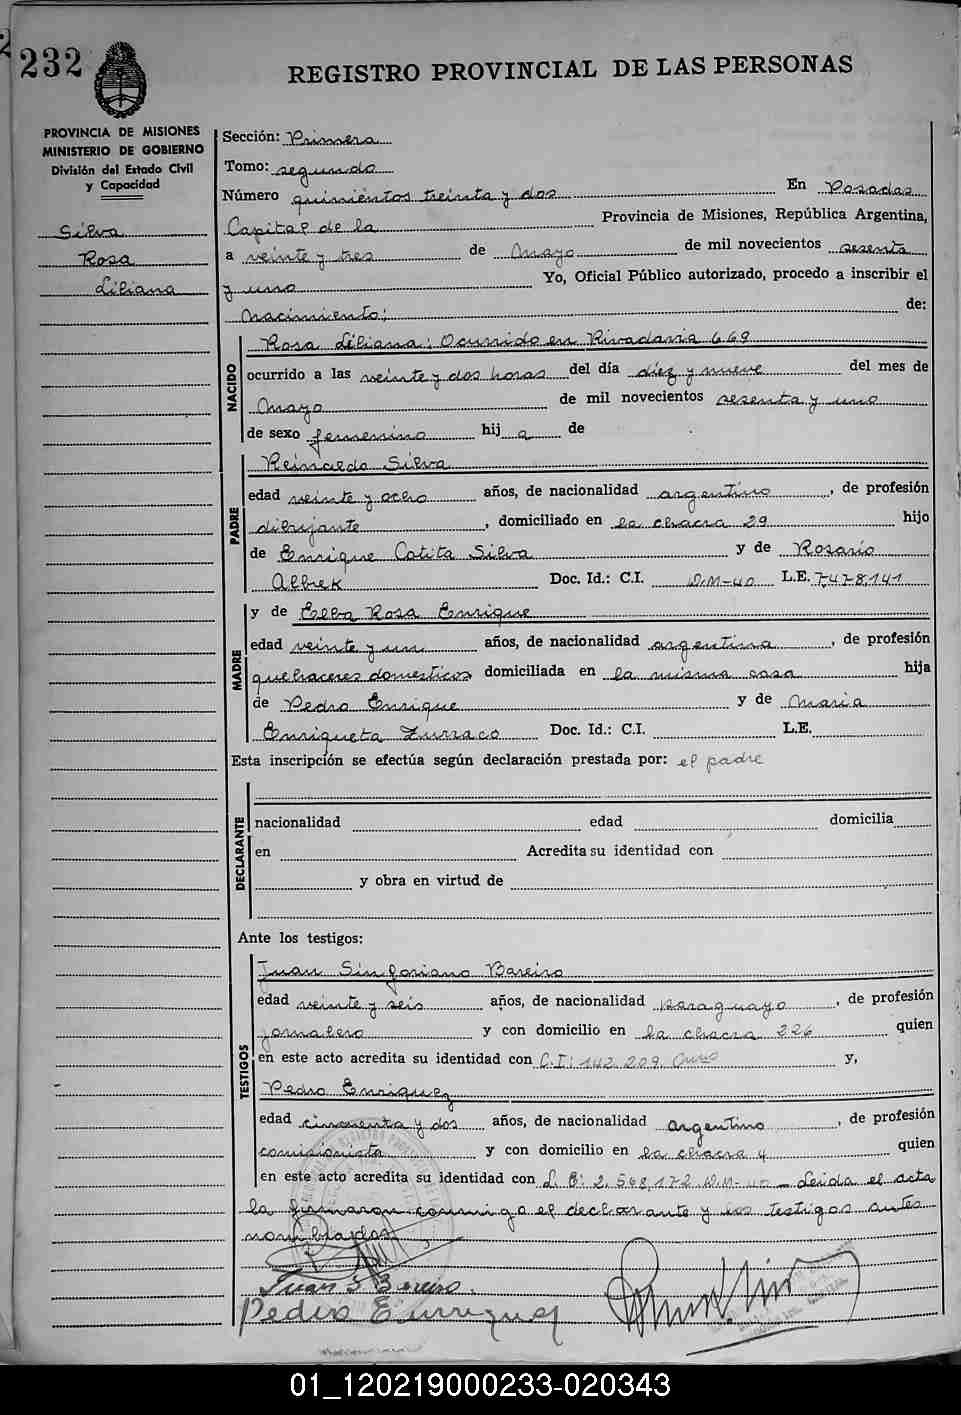 232
REGISTRO PROVINCIAL DE LAS PERSONAS
PROVINCIA DE MISIONES
MINISTERIO DE GOBIERNO
División del Estado Civil
y Capacidad
Silva
Rosa
Liliana
Sección: Primera
Tomo: segundo
Número quinientos treinta y dos En Posadas
Capital de la Provincia de Misiones, República Argentina,
a veinte y tres de Mayo de mil novecientos sesenta
y uno Yo, Oficial Público autorizado, procedo a inscribir el
Nacimiento: de:
NACIDO
Rosa Liliana: Ocurrido en Rivadavia 669
ocurrido a las veinte y dos horas del día diez y nueve del mes de
Mayo de mil novecientos sesenta y uno
de sexo femenino hij a de
PADRE
Reinaldo Silva
edad veinte y ocho años, de nacionalidad argentino, de profesión
dibujante, domiciliado en la chacra 29 hijo
de Enrique Silva y de Rosario
Albek Doc. Id.: C.I. D.M-40 L.E. 7.478.141
MADRE
y de Elba Rosa Enrique
edad veinte y un años, de nacionalidad argentina, de profesión
quehaceres domesticos domiciliada en la misma casa hija
de Pedro Enrique y de Maria
Enriqueta Zurraco Doc. Id.: C.I. L.E.
Esta inscripción se efectúa según declaración prestada por: el padre
DECLARANTE
nacionalidad edad domicilia
en Acredita su identidad con
y obra en virtud de
Ante los testigos:
TESTIGOS
Juan Sinforiano Bareiro
edad veinte y seis años, de nacionalidad paraguayo, de profesión
jornalero y con domicilio en la chacra 226 quien
en este acto acredita su identidad con C.I: 142.209 y,
Pedro Enriquez
edad cincuenta y dos años, de nacionalidad argentino, de profesión
comisionista y con domicilio en la chacra 4 quien
en este acto acredita su identidad con L. E: 2.568.172 D.M-40 - Leida el acta
la firmaron conmigo el declarante y los testigos antes
nombrados
Juan S Bareiro.
Pedro Enrriquez
01_120219000233-020343